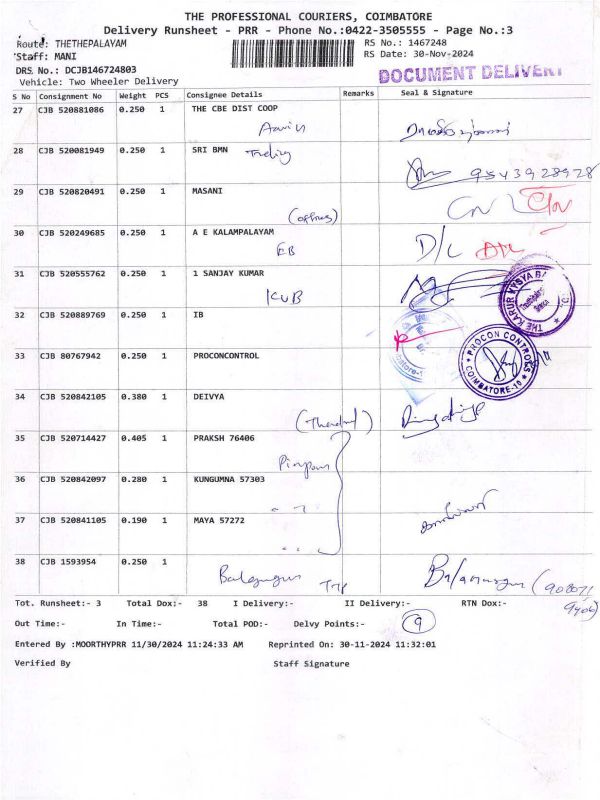 THE PROFESSIONAL COURIERS, COIMBATORE
Delivery Runsheet - PRR - Phone No.:0422-3505555 - Page No.:3
Route: THETHEPALAYAM RS No.: 1467248
Staff: MANI RS Date: 30-Nov-2024
DRS No.: DCJB146724803
DOCUMENT DELIVERY
Vehicle: Two Wheeler Delivery
S No Consignment No Weight PCS Consignee Details Remarks Seal & Signature
27 CJB 520881086 0.250 1 THE CBE DIST COOP
28 CJB 520081949 0.250 1 SRI BMN Trading
9543928928
29 CJB 520820491 0.250 1 MASANI
30 CJB 520249685 0.250 1 A E KALAMPALAYAM
EB D/C
31 CJB 520555762 0.250 1 1 SANJAY KUMAR
KVB
THE KARUR VYSYA BA
32 CJB 520889769 0.250 1 IB
33 CJB 80767942 0.250 1 PROCONCONTROL
PROCON CONTROLS
COIMBATORE-10
34 CJB 520842105 0.380 1 DEIVYA
35 CJB 520714427 0.405 1 PRAKSH 76406
36 CJB 520842097 0.280 1 KUNGUMNA 57303
37 CJB 520841105 0.190 1 MAYA 57272
38 CJB 1593954 0.250 1
Balamurugan
Tot. Runsheet:- 3 Total Dox:- 38 I Delivery:- II Delivery:- RTN Dox:-
Out Time:- In Time:- Total POD:- Delvy Points:- 9
Entered By :MOORTHYPRR 11/30/2024 11:24:33 AM Reprinted On: 30-11-2024 11:32:01
Verified By Staff Signature